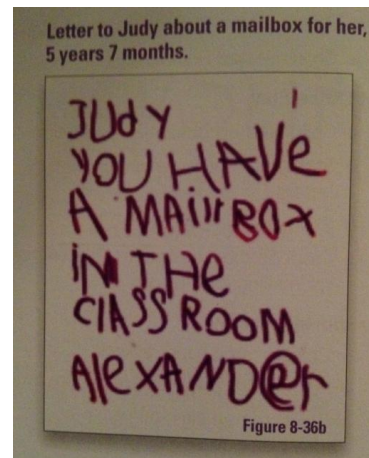 Letter to Judy about a mailbox for her,
5 years 7 months.
JUdY
YOU HAVe
A MAIlBOX
iN THe
ClASSROOM
AleXANDer
Figure 8-36b